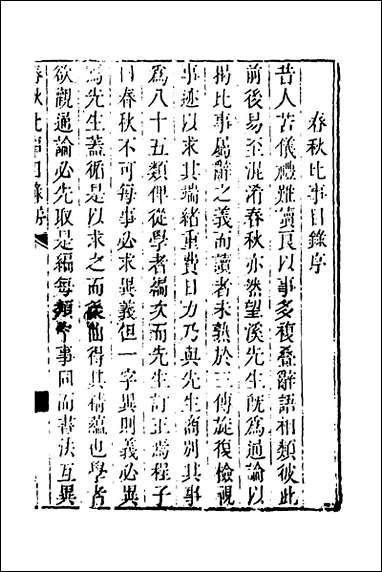 春秋比事目錄序
昔人苦儀禮難讀良以事多複疊辭語相類彼此
前後易至混淆春秋亦然望溪先生既為通論以
揭比事屬辭之義而讀者未熟於三傳旋復檢視
事迹以求其端緒重費日力乃與先生商別其事
為八十五類俾從學者編次而先生訂正焉程子
曰春秋不可每事必求異義但一字異則義必異
焉先生蓋循是以求之而後得其精蘊也學者
欲觀通論必先取是編每類中事同而書法互異
春秋比事目錄序